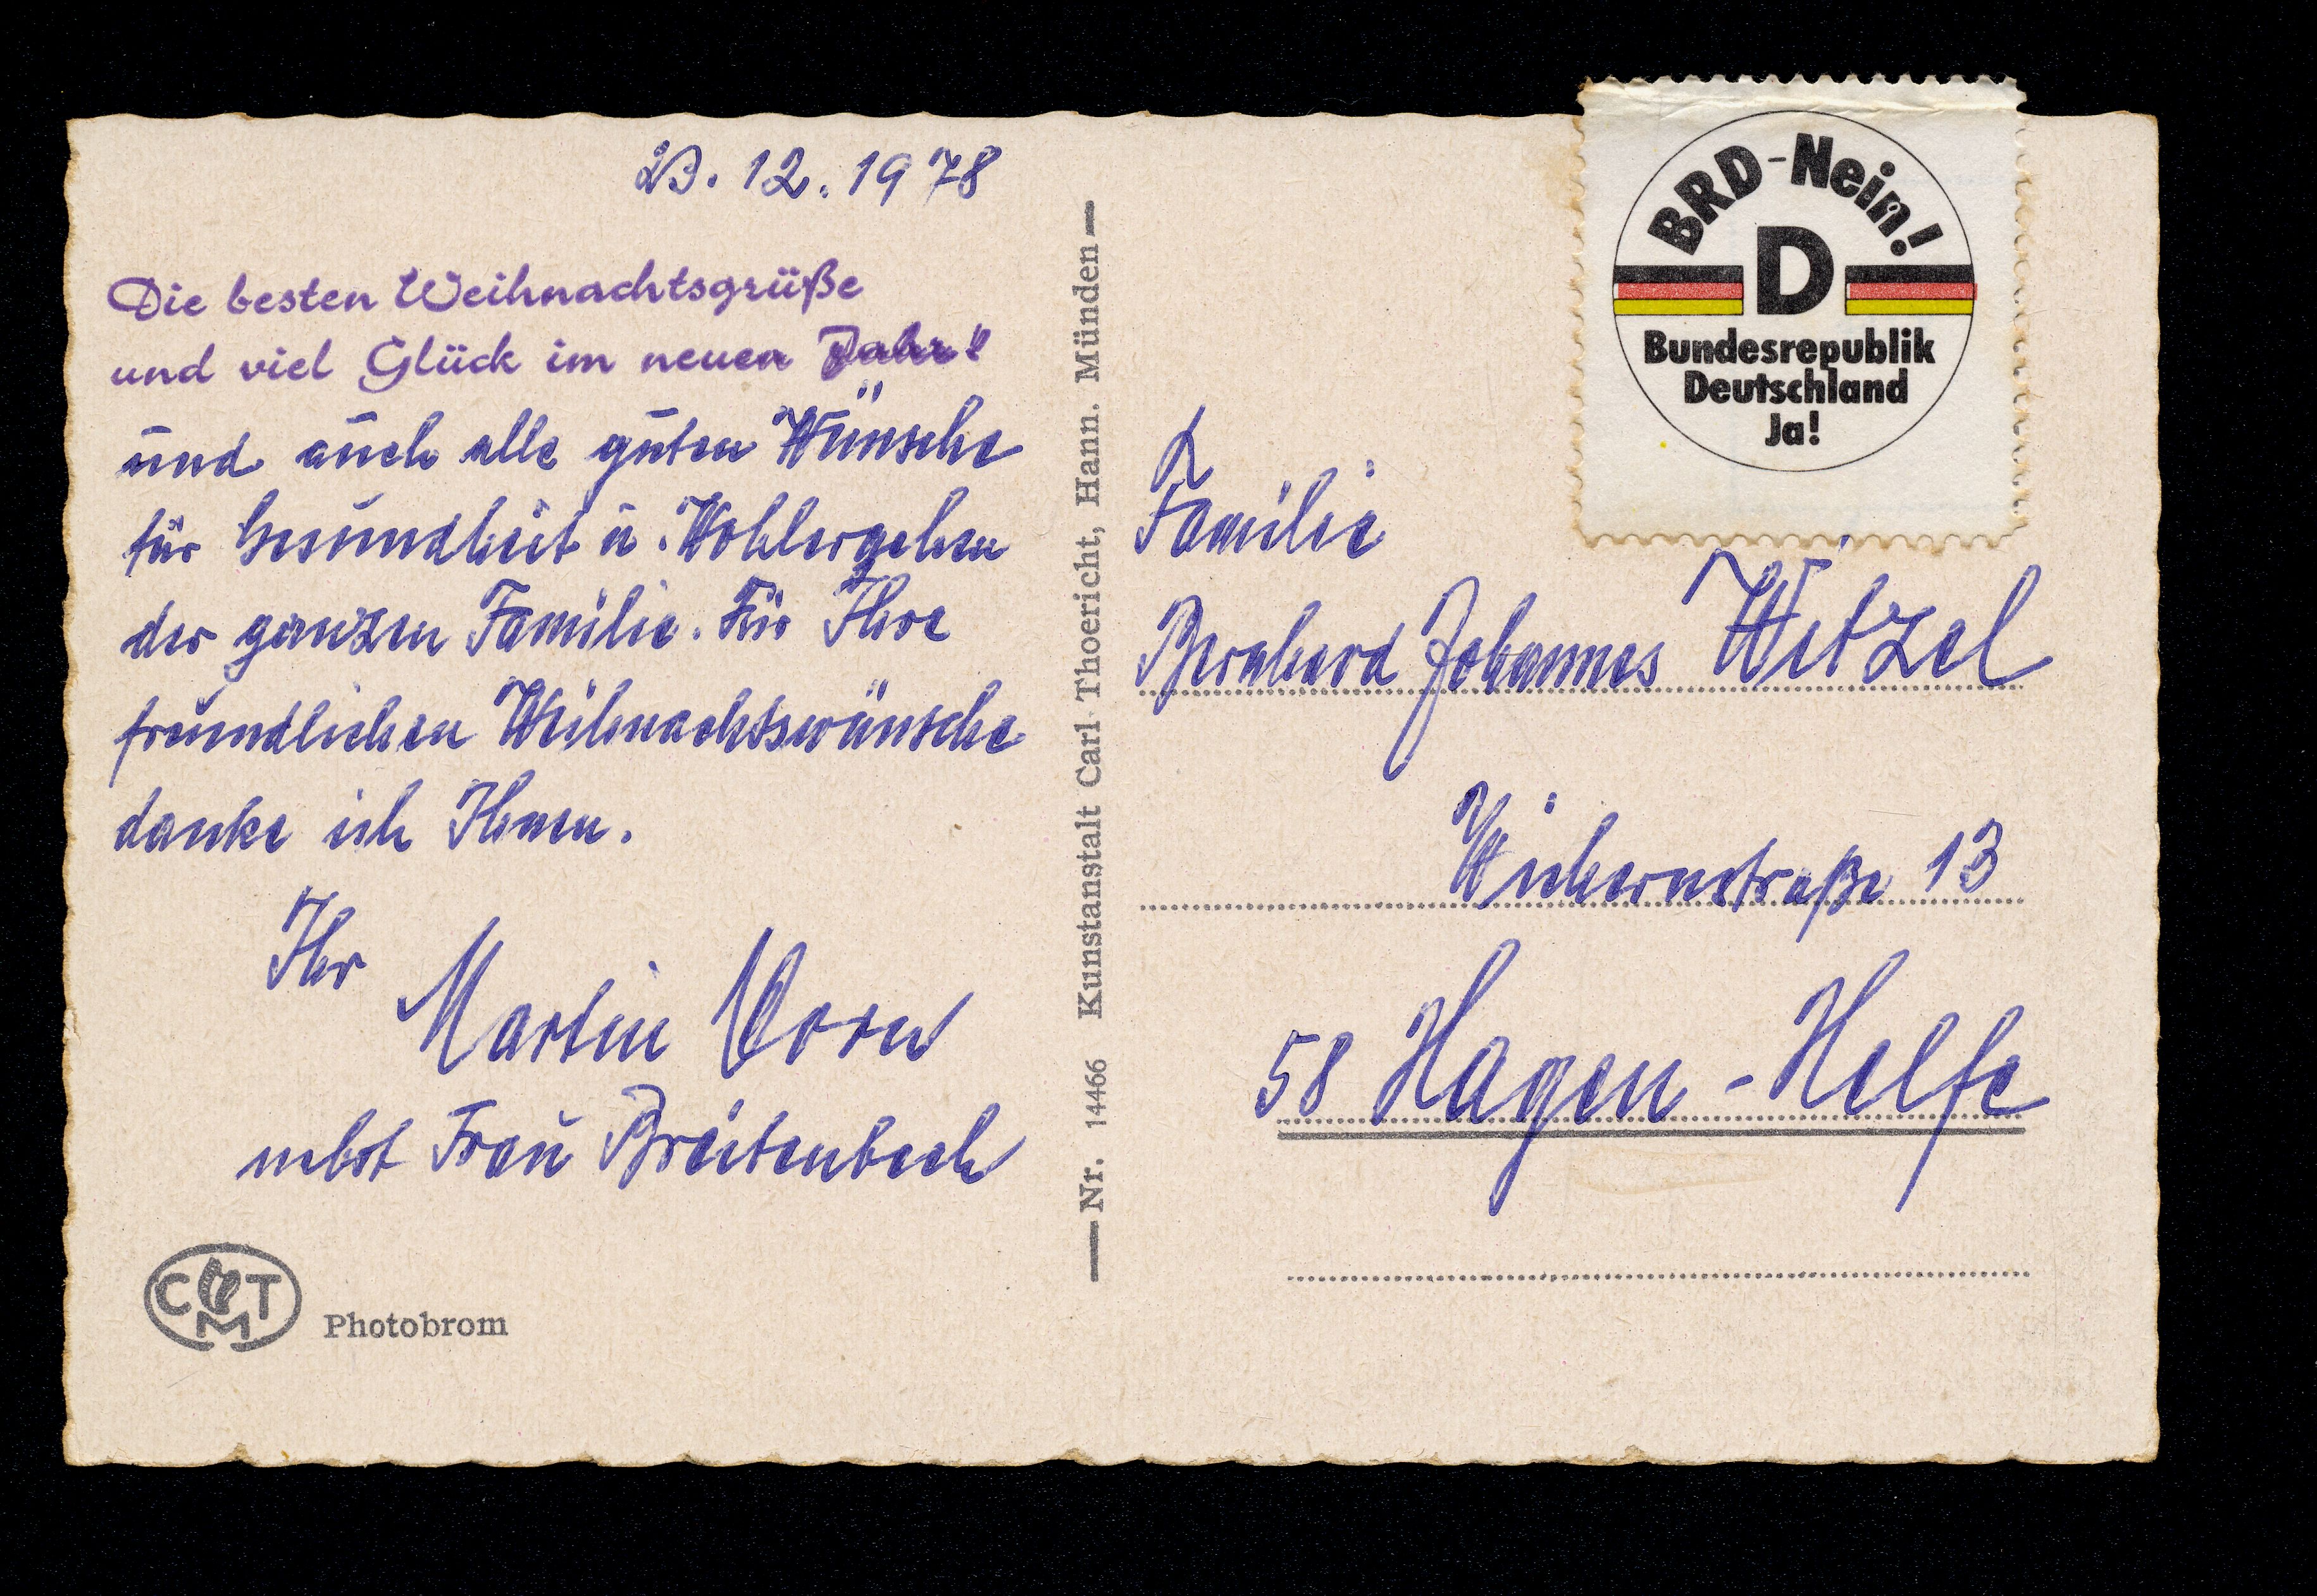 23. 12. 1978
Die besten Weihnachtsgrüße
und viel Glück im neuen Jahr!
und auch alle guten Wünsche
für Gesundheit u. Wohlergehen
der ganzen Familie. Für Ihre
freundlichen Weihnachtswünsche
danke ich Ihnen.
Ihr
Martin Vorn
nebst Frau Breitenbach
C M T
Photobrom
Nr. 14466 Kunstanstalt Carl Thoericht, Hann. Münden
BRD-Nein!
D
Bundesrepublik
Deutschland
Ja!
Familie
Bernhard Johannes Witzel
Wichernstraße 13
58 Hagen-Helfe